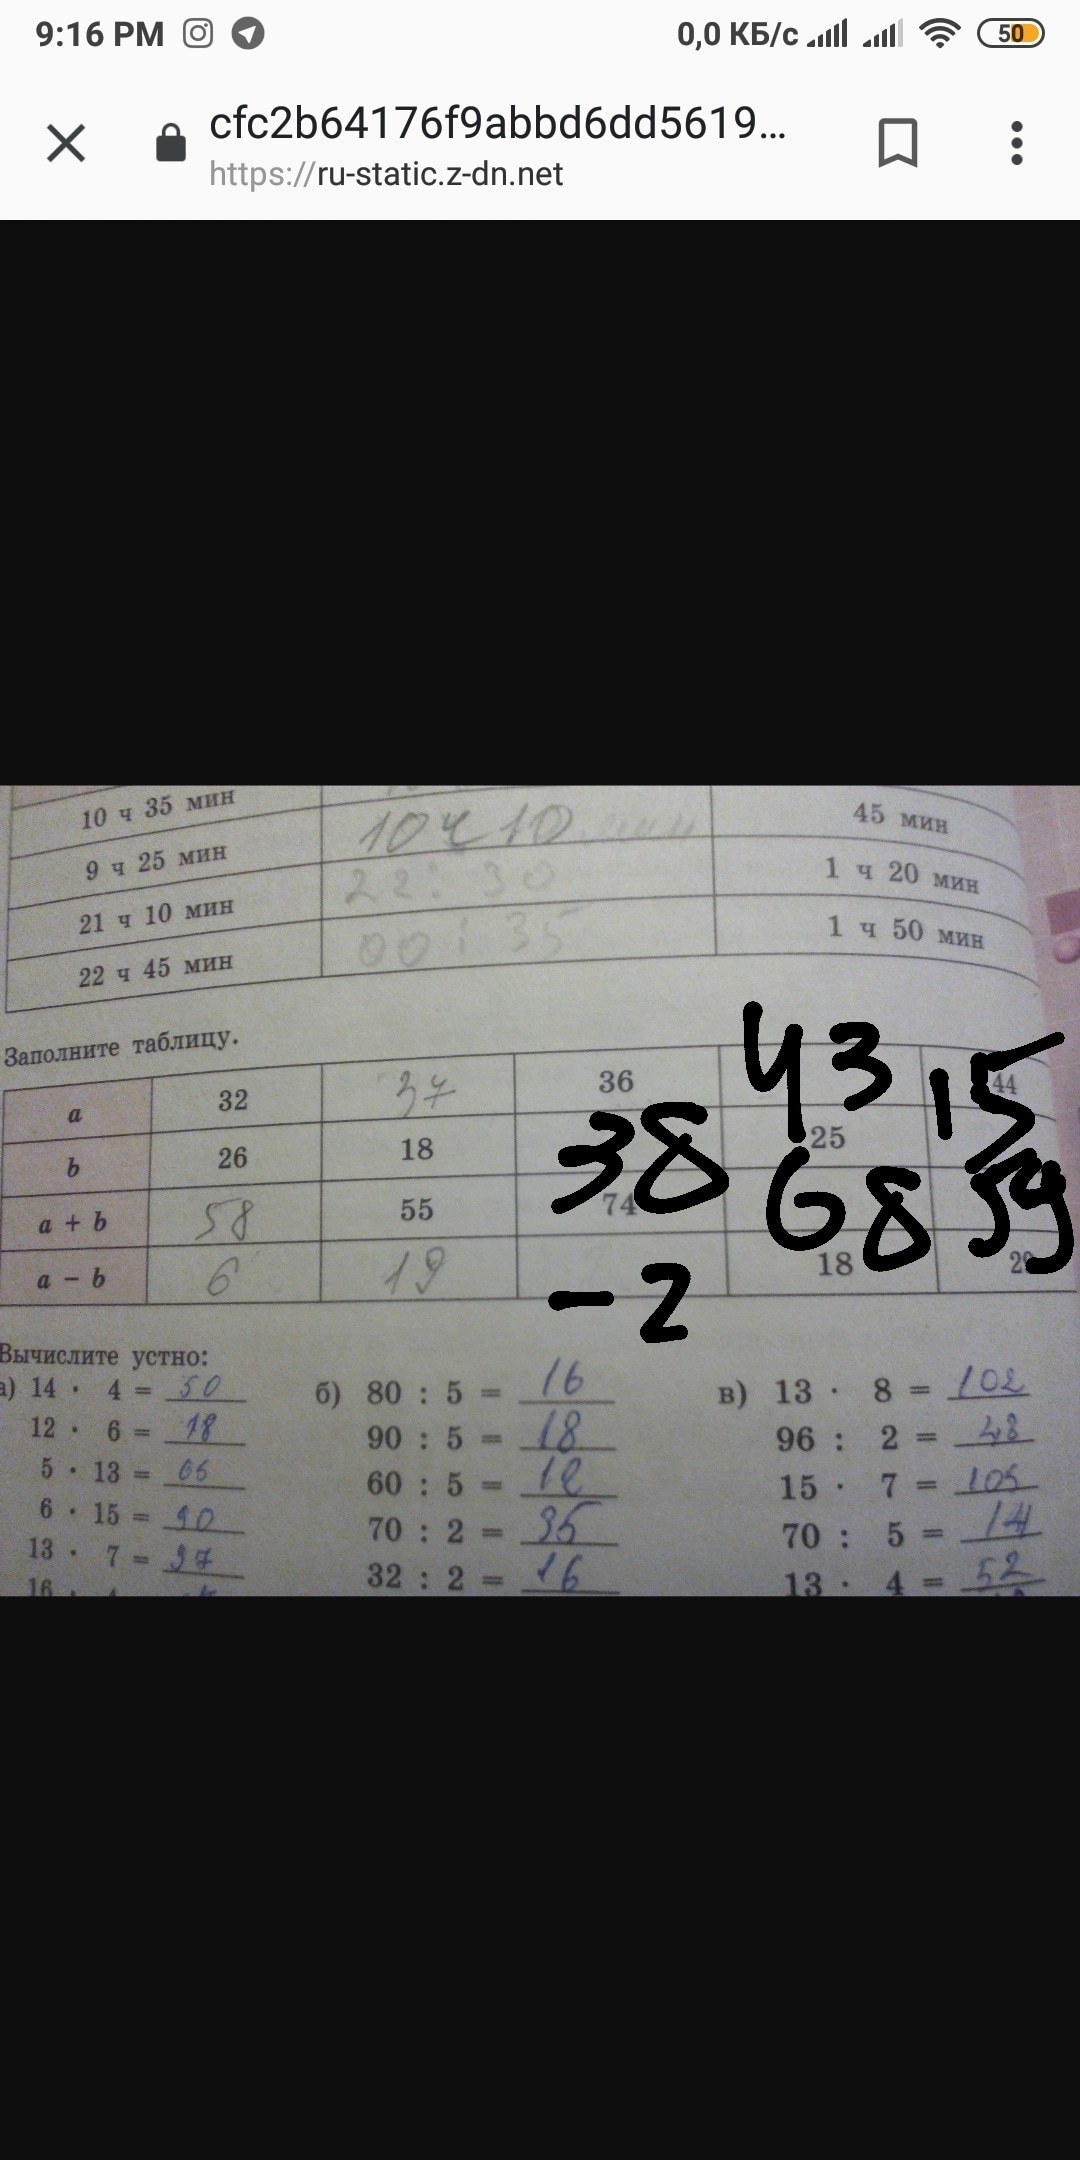 9:16 PM 0,0 КБ/с 50
cfc2b64176f9abbd6dd5619...
https://ru-static.z-dn.net
10 ч 35 мин 10ч 10 45 мин
9 ч 25 мин 22: 30 1 ч 20 мин
21 ч 10 мин 00: 35 1 ч 50 мин
22 ч 45 мин
Заполните таблицу.
a 32 37 36 43 44
b 26 18 38 25 15
a + b 58 55 74 68 59
a - b 6 19 -2 18
Вычислите устно:
а) 14 · 4 = 50 б) 80 : 5 = 16 в) 13 · 8 = 102
12 · 6 = 18 90 : 5 = 18 96 : 2 = 48
5 · 13 = 60 : 5 = 12 15 · 7 = 105
6 · 15 = 90 70 : 2 = 35 70 : 5 = 14
13 · 7 = 97 32 : 2 = 16 13 · 4 = 52
16 ·